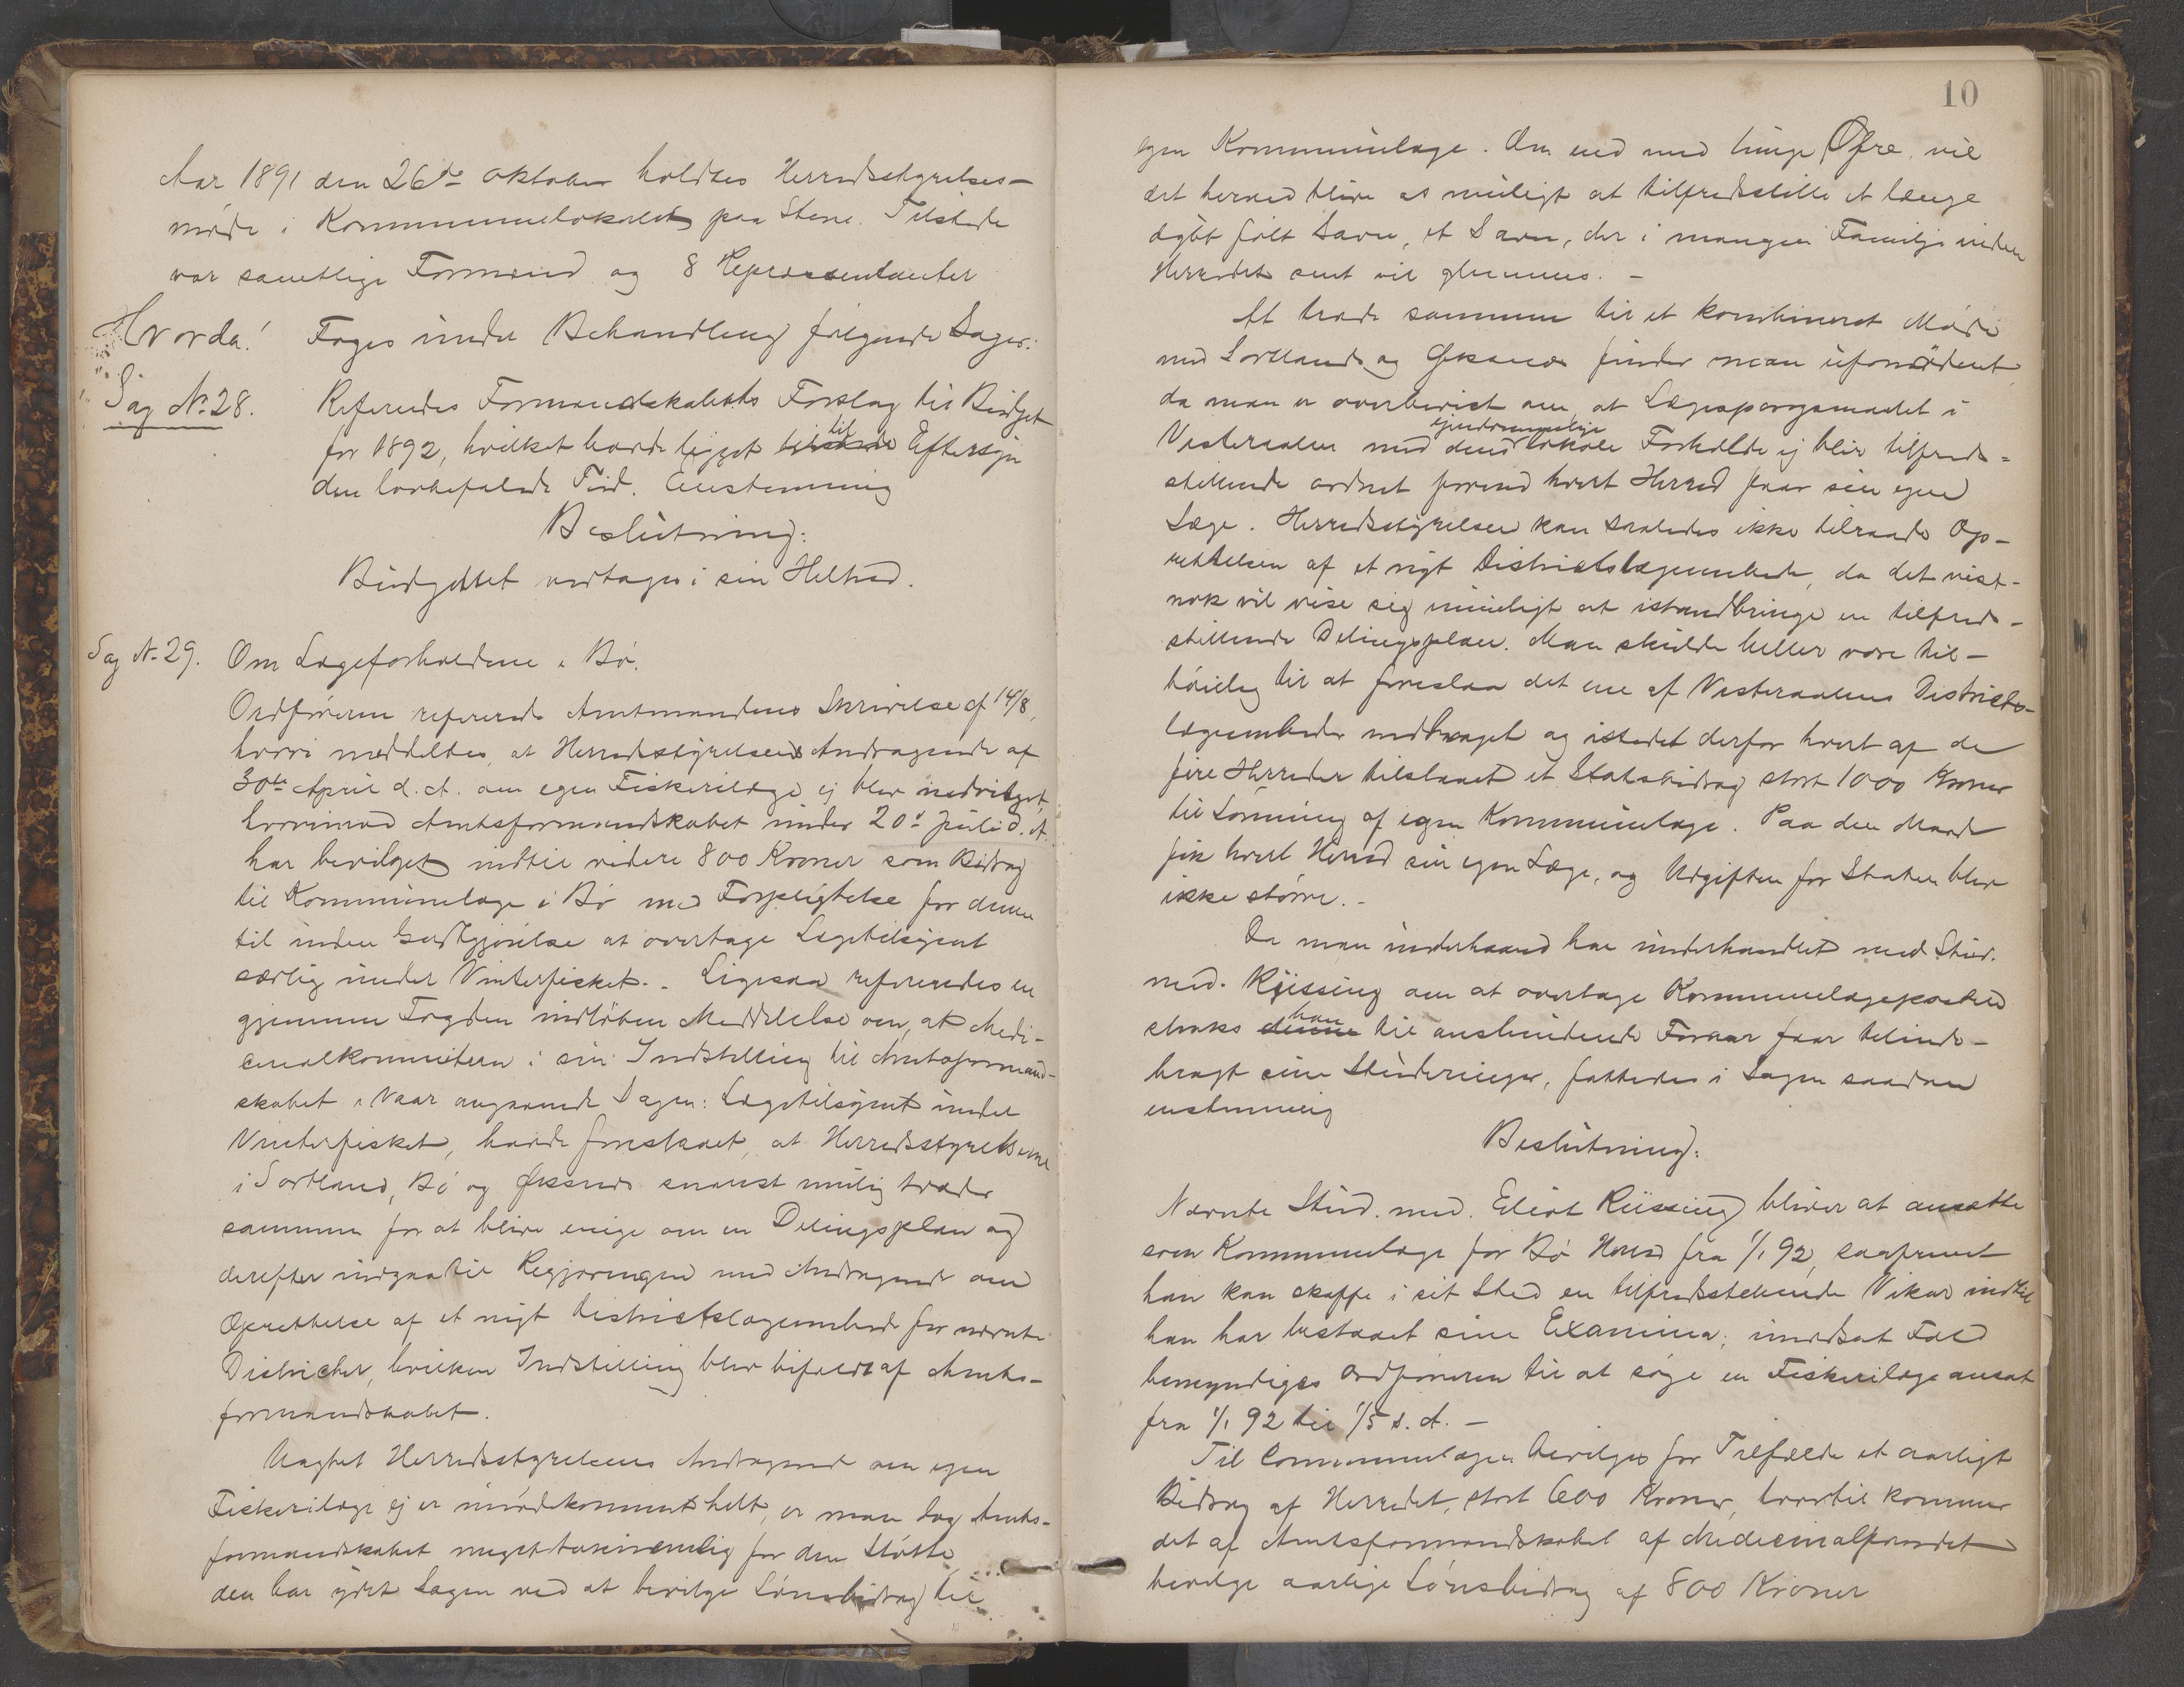 Aar 1891 den 26de Oktober holdtes Herredsstyrelses-
møde i Kommunelokalet paa Steine. Tilstede
var samtlige Formænd og 8 Repræsentanter
Hvorda! Toges under Behandling følgende Sager:
Sag No 28. Refereredes Formandskabets Forslag til Budget
for 1892, hvilket havde ligget til Eftersyn
den lovbefalede Tid. Enstemmig
Beslutning:
Budgettet vedtages i sin Helhed.
Sag No 29. Om Lægeforholdene i Bø.
Ordføreren refererede Amtmandens Skrivelse af 14/8,
hvori meddeltes, at Herredsstyrelsens Andragende af
30te April d. A. om egen Fiskerilæge ej blev indvilget,
hvorimod Amtsformandskabet under 20d Juli d. A.
har bevilget indtil videre 800 Kroner som Bidrag
til Kommunelæge i Bø med Forpligtelse for denne
til uden Godtgjørelse at overtage Lægetilsynet
særlig under Vinterfisket. - Ligesaa refereredes en
gjennem Fogden indløben Meddelelse om, at Medi-
cinalkomiteen i sin Indstilling til Amtsformand-
skabet i Vaar angaaende Sagen: Lægetilsynet under
Vinterfisket, havde foreslaaet, at Herredsstyrelserne
i Sortland, Bø og Øksnes snarest mulig træder
sammen for at blive enige om en Delingsplan og
derefter indgaa til Regjeringen med Andragende om
Oprettelse af et nyt Distriktslægeembede for nævnte
Districter, hvilken Indstilling blev bifaldt af Amts-
formandskabet.
Uagtet Herredsstyrelsens Andragende om egen
Fiskerilæge ej er imødekommet helt, er man dog Amts-
formandskabet meget taknemmelig for den Støtte
den har ydet Sagen ved at bevilge Lønsbidrag til
10
egen Kommunelæge. Om end med tunge Ofre, vil
det herved blive os muligt at tilfredsstille et længe
dybt følt Savn, et Savn, der i mangen Familje inden
Herredet sent vil glemmes. -
At træde sammen til et kombineret Møde
med Sortland og Øksnes finder man ufornødent,
da man er overbevist om, at Lægespørgsmaalet i
Vesteraalen med dens ejendommelige lokale Forholde ej blir tilfreds-
stillende ordnet forend hvert Herred faar sin egen
Læge. Herredsstyrelsen kan saaledes ikke tilraade Op-
rettelsen af et nyt Distriktslægeembede, da det vist-
nok vil vise sig umuligt at istandbringe en tilfreds-
stillende Delingsplan. Man skulde heller være til-
bøielig til at foreslaa det ene af Vesteraalens Districts-
lægeembeder inddraget og istedet derfor hvert af de
fire Herreder tilstaaet et Statsbidrag stort 1000 Kroner
til Lønning af egen Kommunelæge. Paa den Maade
fik hvert Herred sin egen Læge, og Udgiften for Staten blev
ikke større. -
Da man underhaand har underhandlet med Stud.
med. Riissing om at overtage Kommunelægeposten
straks han til anstundende Foraar faar tilende-
bragt sine Studeringer, fattedes i Sagen saadan
enstemmig
Beslutning:
Nævnte Stud. med. Eliot Riissing bliver at ansætte
som Kommunelæge for Bø Herred fra 1/1 92, saafremt
han kan skaffe i sit Sted en tilfredsstillende Vikar indtil
han har bestaaet sine Examina; imodsat Fald
bemyndiges Ordføreren til at søge en Fiskerilæge ansat
fra 1/1 92 til 1/5 s. A. -
Til Communelægen bevilges for Tilfælde et aarligt
Bidrag af Herredet, stort 600 Kroner, hvortil kommer
det af Amtsformandskabet af Medicinalfondet
bevilge aarlige Lønsbidrag af 800 Kroner